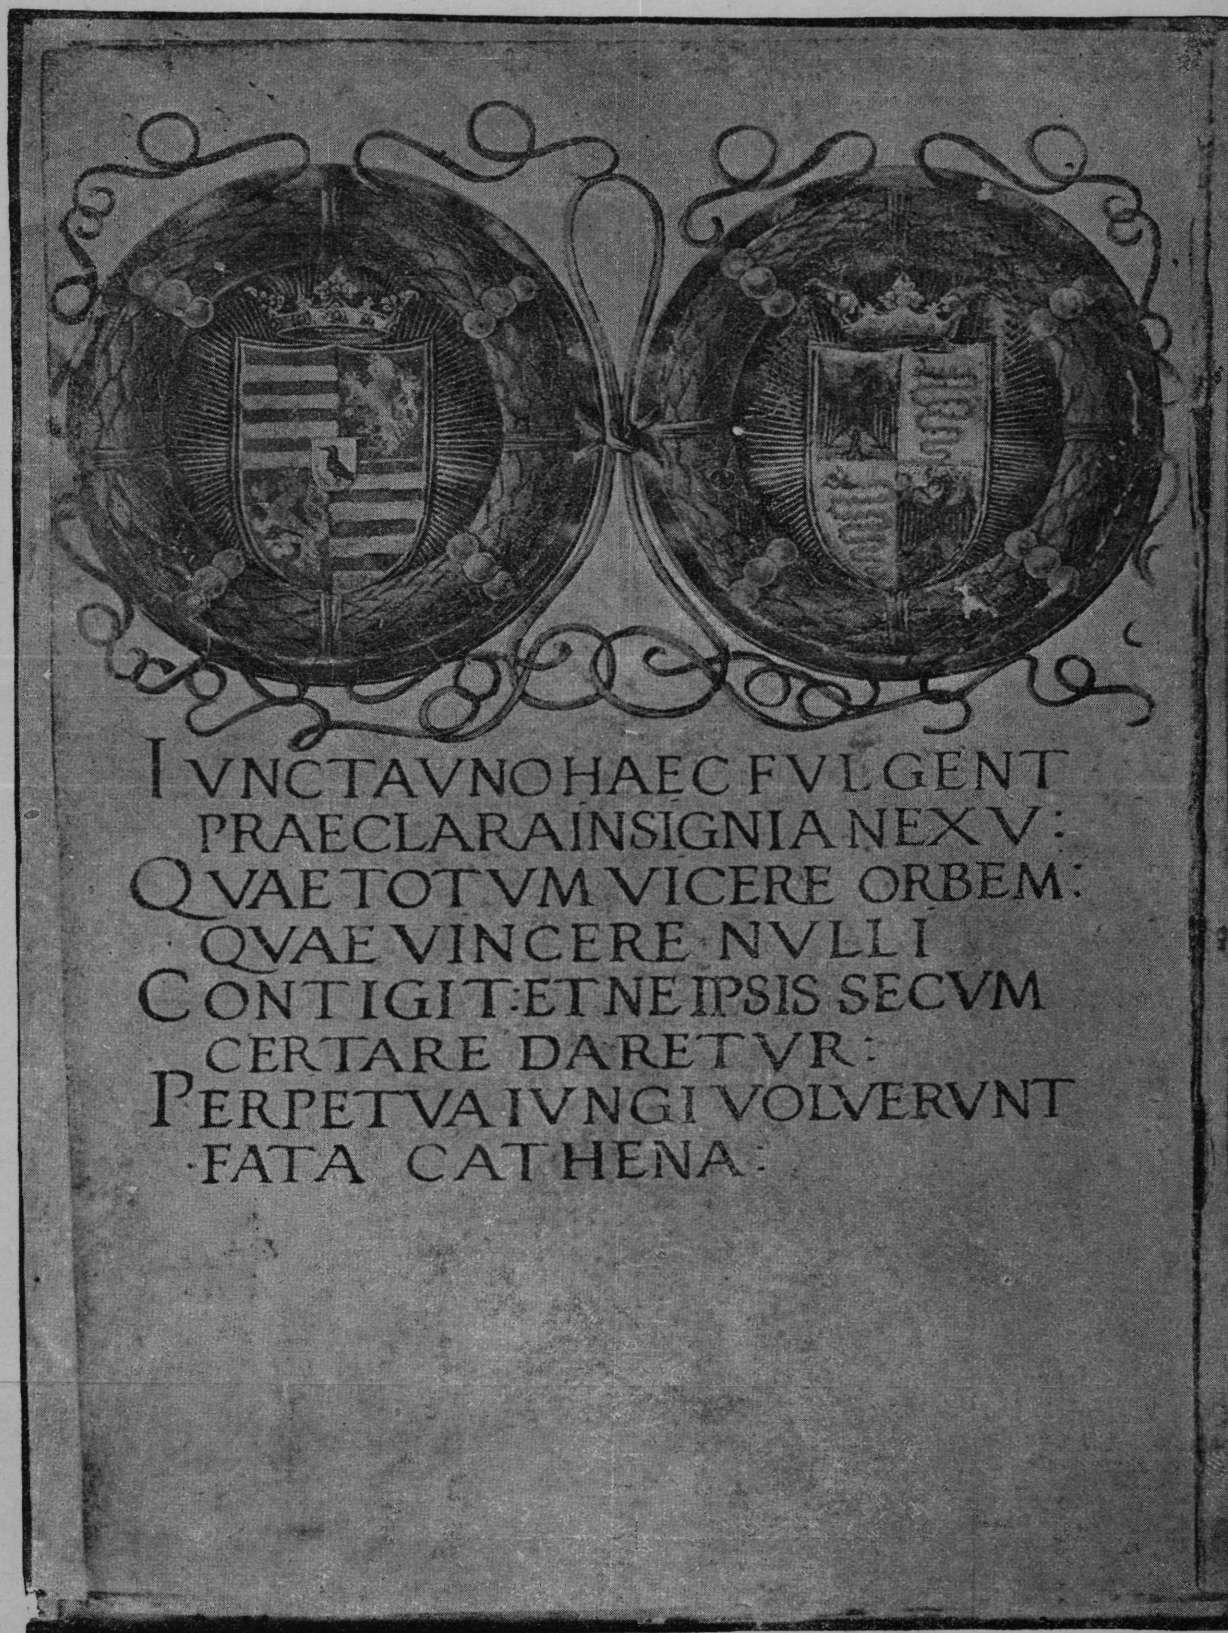 IVNCTA VNO HAEC FVLGENT
PRAECLARA INSIGNIA NEXV:
QVAE TOTVM VICERE ORBEM:
QVAE VINCERE NVLLI
CONTIGIT: ET NE IPSIS SECVM
CERTARE DARETVR:
PERPETVA IVNGI VOLVERVNT
FATA CATHENA: